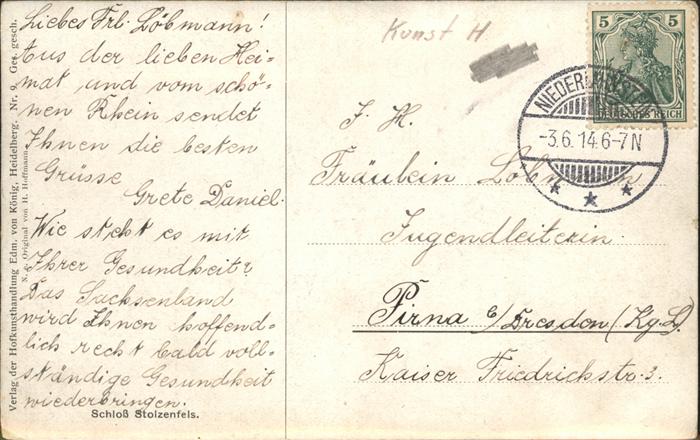 Verlag der Hofkunsthandlung Edm. von König, Heidelberg. Nr. 9. Ges. gesch.
N. e. Original von H. Hoffmann
Liebes Frl. Löbmann!
Aus der lieben Hei-
mat und vom schö-
nen Rhein sendet
Ihnen die besten
Grüsse
Grete Daniel.
Wie steht es mit
Ihrer Gesundheit?
Das Sachsenland
wird Ihnen hoffend-
lich recht bald voll-
ständige Gesundheit
wiederbringen.
Schloß Stolzenfels.
Kunst H
5 5
DEUTSCHES REICH
-3.6.14.6-7N
F. H.
Fräulein Löbmann
Jugendleiterin
Pirna b/Dresden (Kg. S.)
Kaiser Friedrichstr. 3.